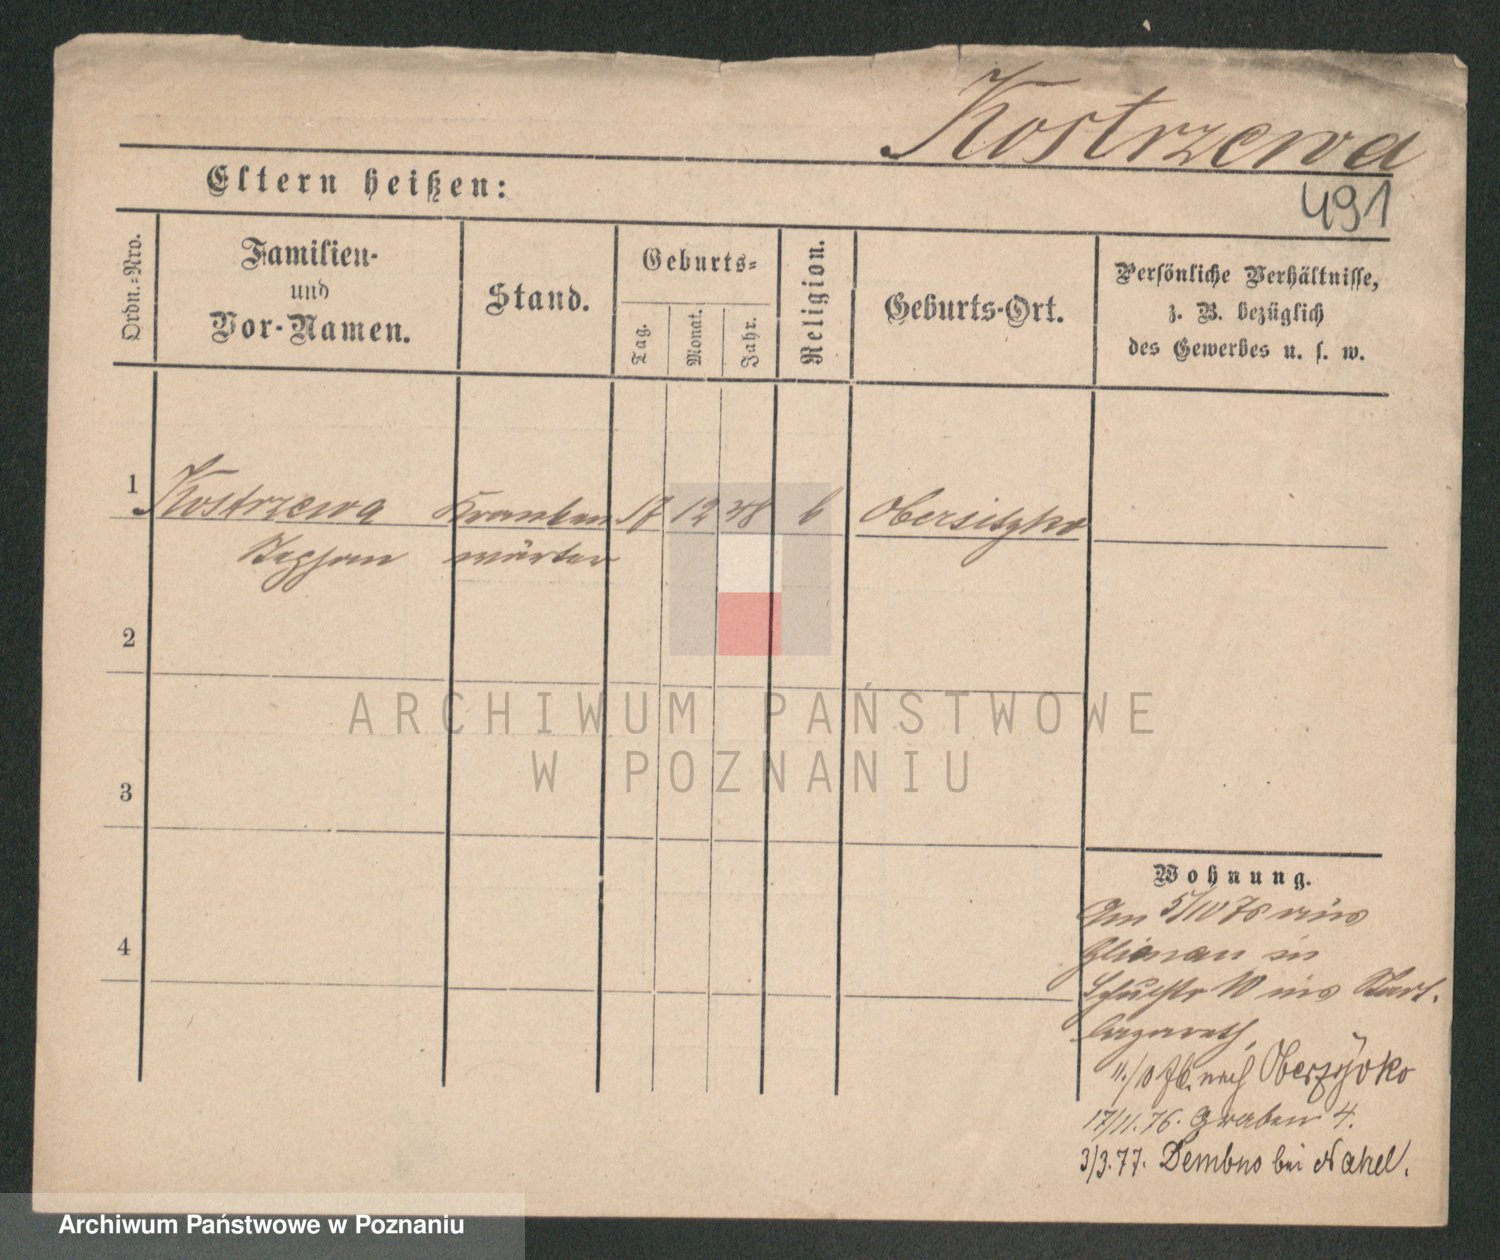 Kostrzewa
491
Eltern heißen:
Ordn.-Nro.
Familien-
und
Vor-Namen.
Stand.
Geburts-
Tag.
Monat.
Jahr.
Religion.
Geburts-Ort.
Persönliche Verhältnisse,
z. B. bezüglich
des Gewerbes u. s. w.
1
Kostrzewa Kranken 17 12 48 k Obersitzko
Stephan wärter
2
ARCHIWUM PAŃSTWOWE
W POZNANIU
3
Wohnung.
Am 5/10 76 aus
in
Schulstr 10 ins Stadt.
Lazareth,
11./10 76. nach Oberzysko
4
17/11. 76. Graben 4.
3/3. 77. Dembno bei Nakel.
Archiwum Państwowe w Poznaniu